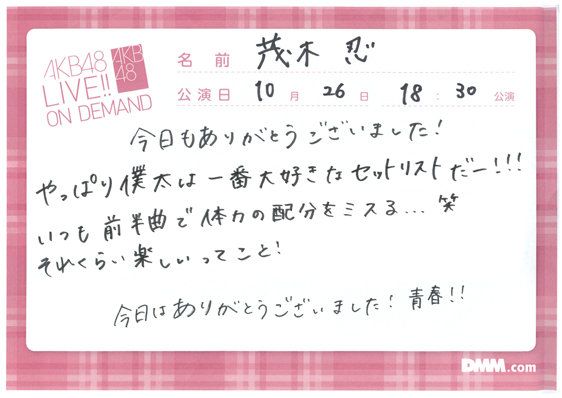 AKB48
LIVE!!
ON DEMAND
AKB
48
名前 茂木 忍
公演日 10月 26日 18:30 公演
今日もありがとうございました!
やっぱり僕太は一番大好きなセットリストだー!!!
いつも前半曲で体力の配分をミスる... 笑
それくらい楽しいってこと!
今日はありがとうございました! 青春!!
DMM.com